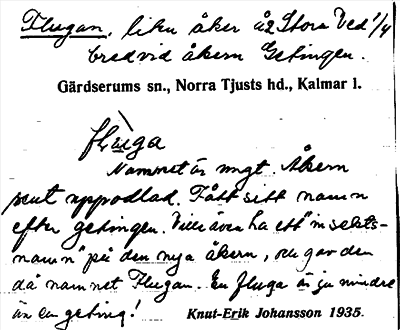 Flugan, liten åker å 2 Stora Ved 1/4
bredvid åkern Getingen.
Gärdserums sn., Norra Tjusts hd., Kalmar l.
flùga
Namnet är ungt. Åkern
sent uppodlad. Fått sitt namn
efter getingen. Ville även ha ett "insekts-
namn" på den nya åkern, och gav den
då namnet Flugan. En fluga är ju mindre
än en geting! Knut-Erik Johansson 1935.